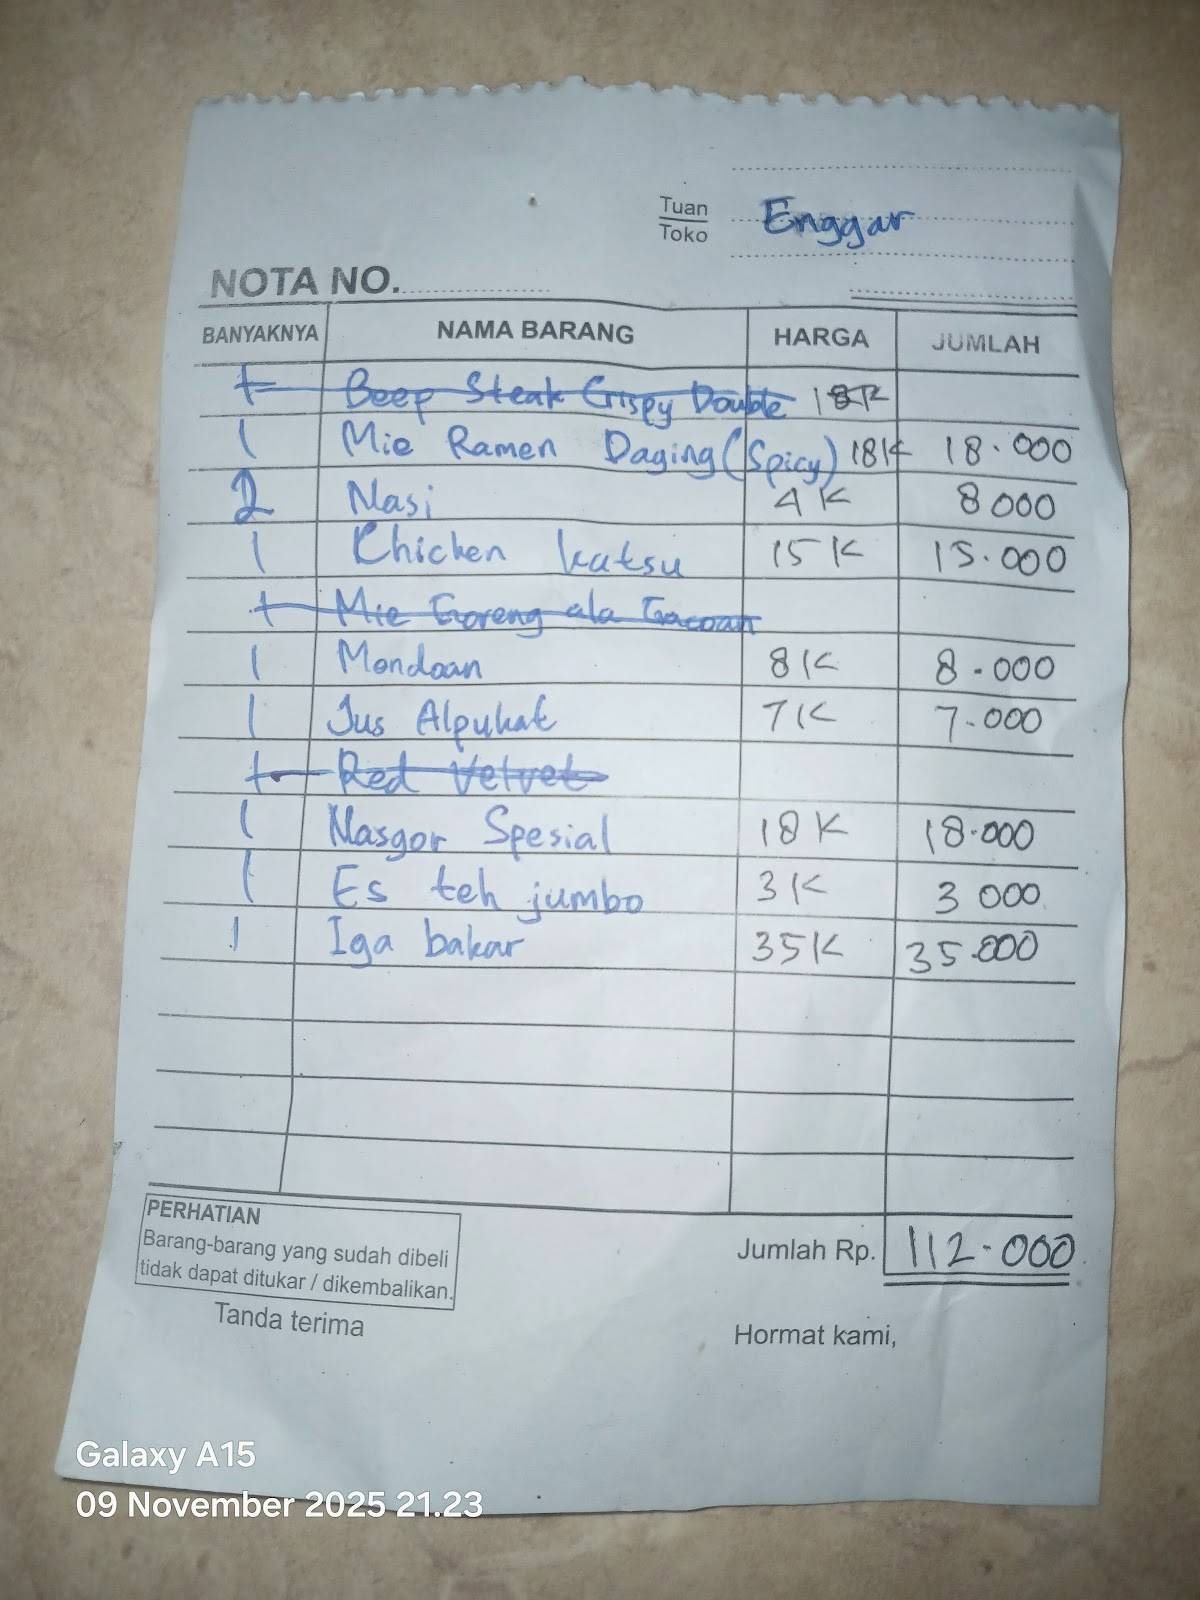 Tuan
Toko
Enggar
NOTA NO.
BANYAKNYA NAMA BARANG HARGA JUMLAH
1 Beep Steak Crispy Double 18K
1 Mie Ramen Daging (Spicy) 18K 18.000
2 Nasi 4K 8000
1 Chicken katsu 15K 15.000
1 Mie Goreng ala Gacoan
1 Mendoan 8K 8.000
1 Jus Alpukat 7K 7.000
1 Red Velvet
1 Nasgor Spesial 18K 18.000
1 Es teh jumbo 3K 3 000
1 Iga bakar 35K 35.000
PERHATIAN
Barang-barang yang sudah dibeli
tidak dapat ditukar / dikembalikan.
Jumlah Rp. 112.000
Tanda terima
Hormat kami,
Galaxy A15
09 November 2025 21.23